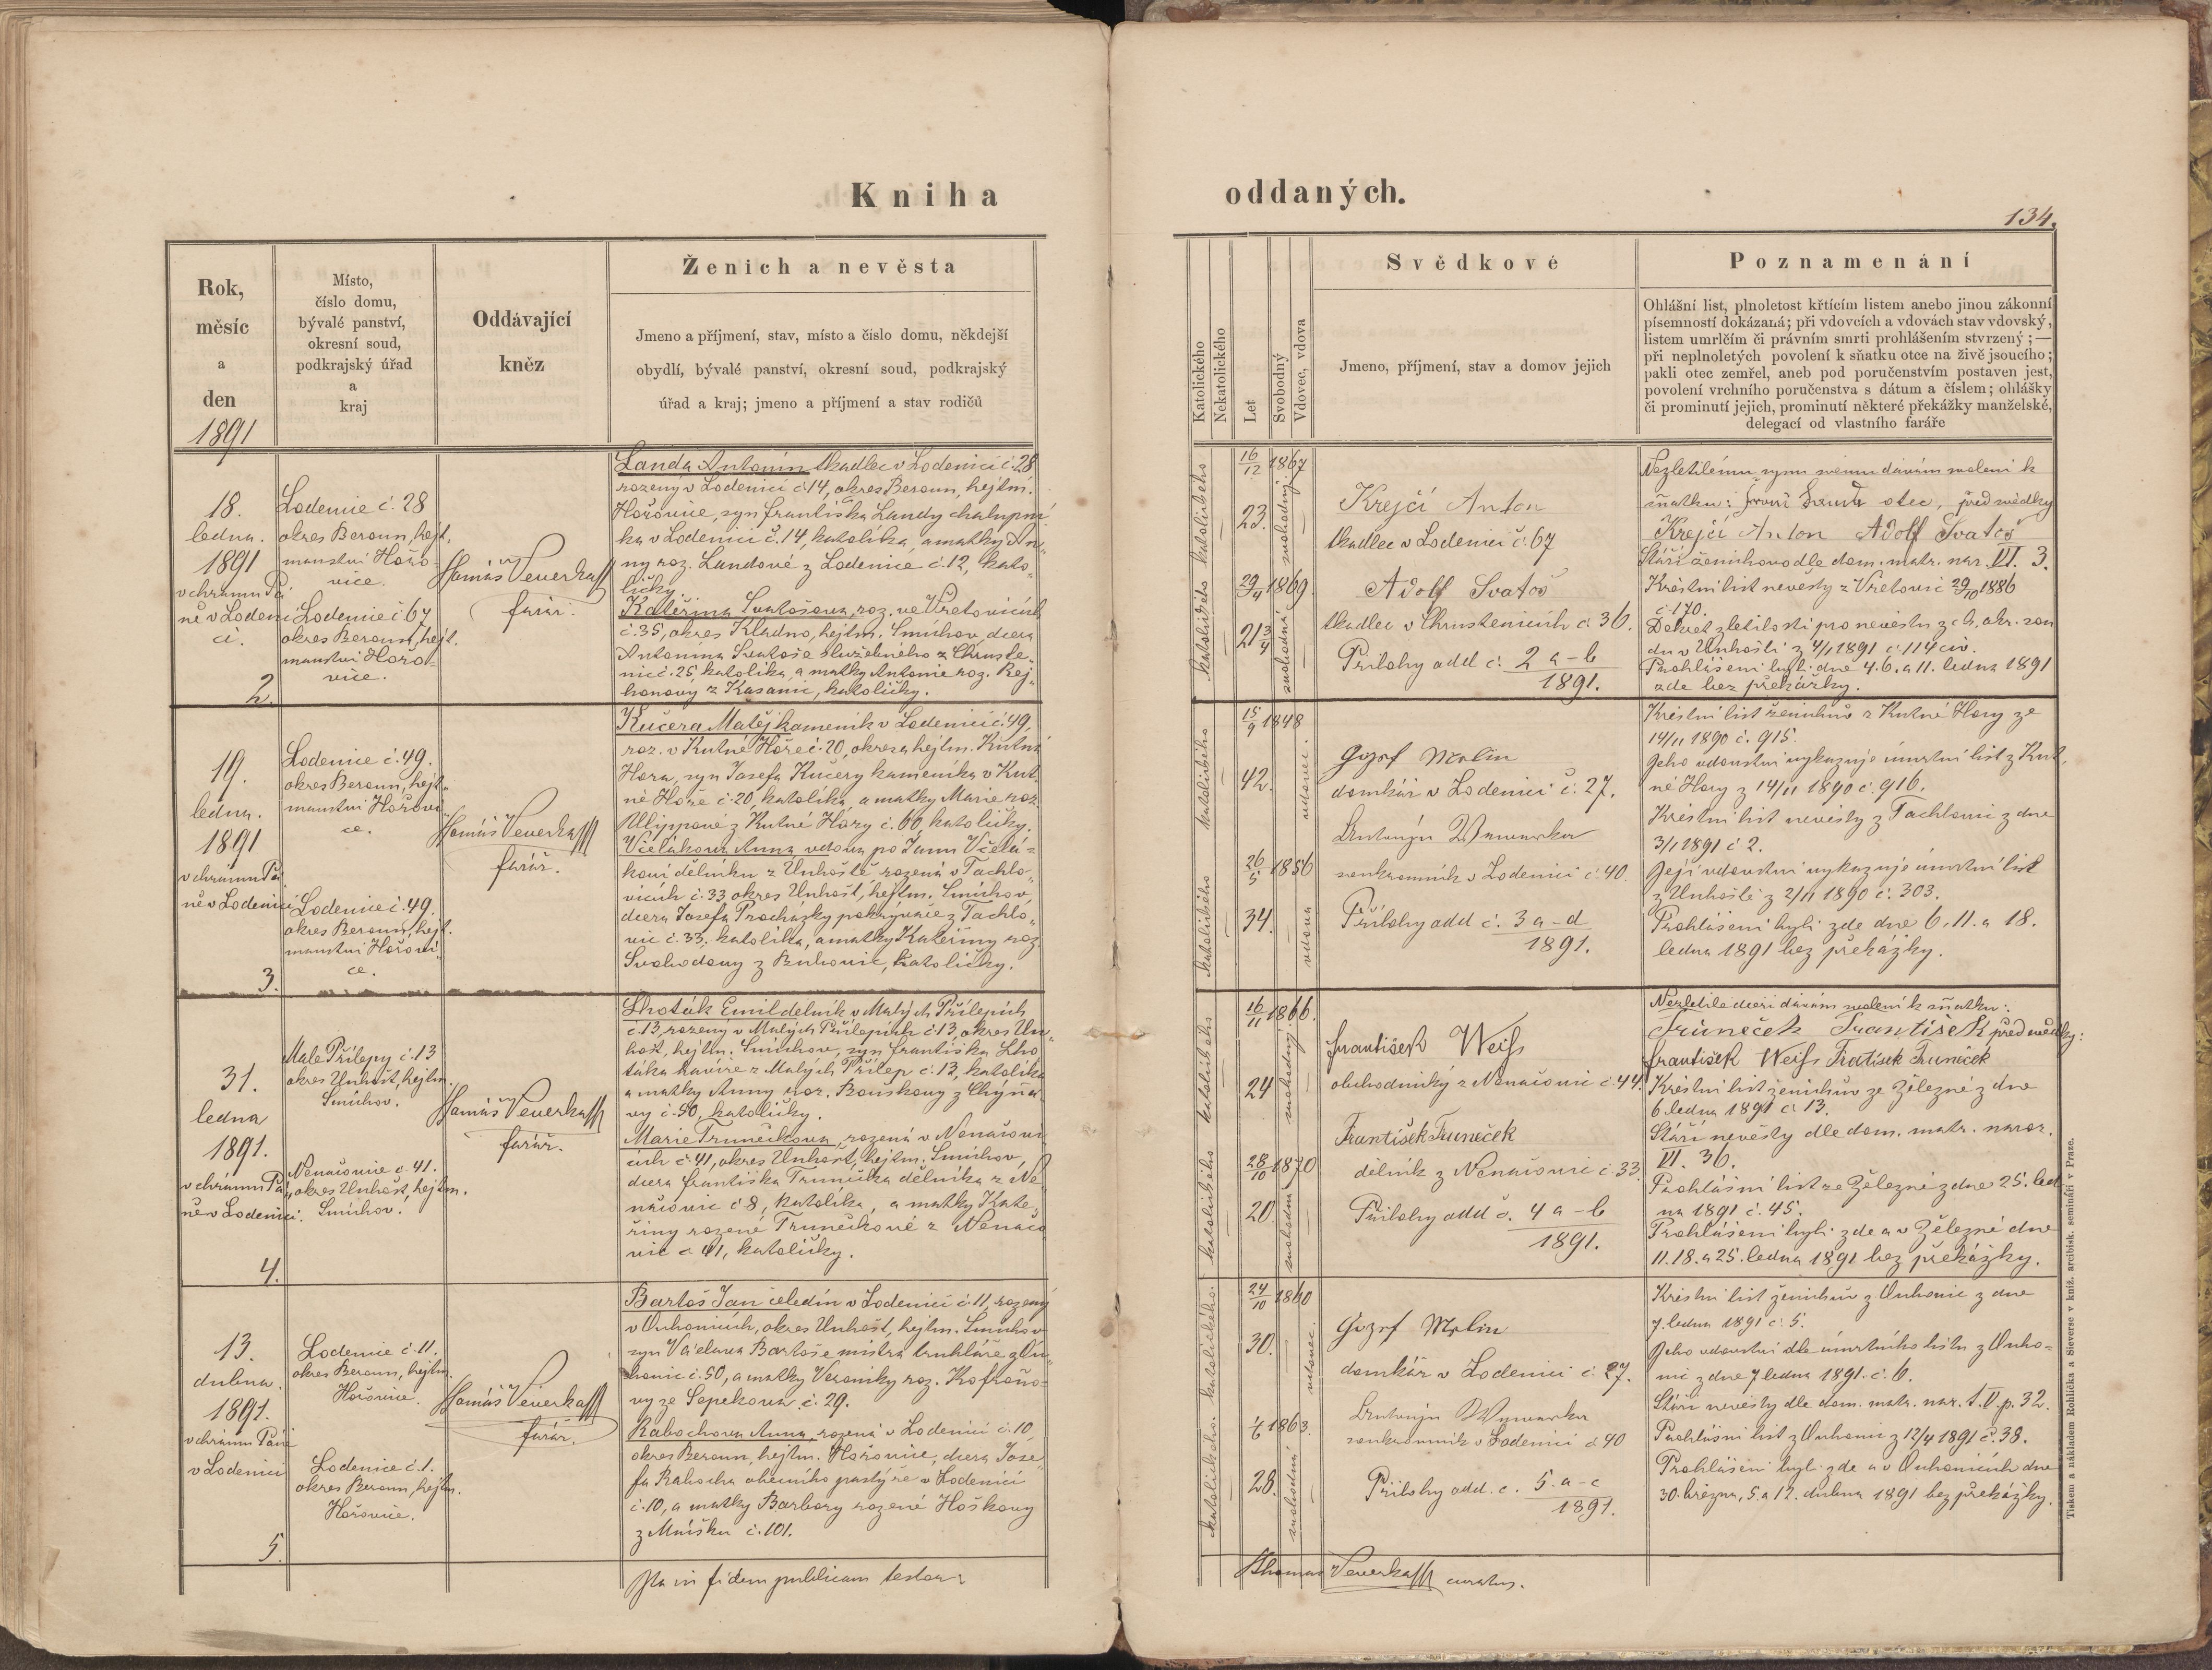 Kniha
oddaných.
134.
Rok,
měsíc
a
den
1891
Místo,
číslo domu,
bývalé panství,
okresní soud,
podkrajský úřad
a
kraj
Oddávající
kněz
Ženich a nevěsta
Jmeno a příjmení, stav, místo a číslo domu, někdejší
obydlí, bývalé panství, okresní soud, podkrajský
úřad a kraj; jmeno a příjmení a stav rodičů
Katolického
Nekatolického
Let
Svobodný
Vdovec, vdova
Svědkové
Jmeno, příjmení, stav a domov jejich
Poznamenání
Ohlášní list, plnoletost křtícím listem anebo jinou zákonní
písemností dokázaná; při vdovcích a vdovách stav vdovský,
listem umrlčím či právním smrti prohlášením stvrzený; —
při neplnoletých povolení k sňatku otce na živě jsoucího;
pakli otec zemřel, aneb pod poručenstvím postaven jest,
povolení vrchního poručenstva s dátum a číslem; ohlášky
či prominutí jejich, prominutí některé překážky manželské,
delegací od vlastního faráře
18.
ledna.
1891
v chrámu Pá
ně v Lodeni
ci.
2.
Lodenice č. 28
okres Beroun, hejt.
manství Hořo
vice.
Lodenice č 67
okres Beroun, hejt.
manství Hořo-
vice.
Tomáš Veverka
farář.
Landa Antonín tkadlec v Lodenici č. 28
rozený v Lodenici č 14, okres Beroun, hejtm.
Hořovice, syn Františka Landy chalupní
ka v Lodenici č. 14, katolíka, a matky An-
ny roz. Landové z Lodenice č. 12, kato-
ličky.
Kateřina Svatošova, roz. ve Vretovicích
č. 35, okres Kladno, hejtm. Smíchov, dcera
Antonína Svatoše služebného z Chruste-
nic č. 25, katolíka, a matky Antonie roz. Rej-
honovy z Kasanic, katoličky.
katolického katolického
16/12 1867
23.
29/4 1869
21 3/4
svobodný
svobodná
Krejčí Anton
tkadlec v Lodenici č. 67
Adolf Svatoš
tkadlec v Chrustenicích č. 36.
Přílohy add č. 2 a-b
1891.
Nezletilému synu svému dávám svolení k
sňatku: Landa otec, před svědky
Krejčí Anton Adolf Svatoš
Stáří ženichovo dle dom. matr. nar. VI. 3.
Křestní list nevěsty z Vretovic 29/10 1886
č. 170.
Dekret zletilosti pro nevěstu z c. k. okr. sou
du v Unhošti z 4/1 1891 č. 114 civ.
Prohlášeni byli dne 4. 6. a 11. ledna 1891
zde bez překážky.
19.
ledna.
1891
v chrámu Pá
ně v Lodenici
3.
Lodenice č. 49.
okres Beroun, hejt-
manství Hořovi
ce.
Lodenice č. 49.
okres Beroun, hejt.
manství Hořovi
ce.
Tomáš Veverka
farář.
Kučera Matěj kameník v Lodenici č. 49,
roz. v Kutné Hoře č. 20, okres a hejtm. Kutná
Hora, syn Josefa Kučery kameníka v Kut
né Hoře č. 20, katolíka, a matky Marie roz.
z Kutné Hory č. 60, katoličky.
Včelákova Anna vdova po Janu Včelá-
kovi dělníku z Unhoště rozená v Tachlo-
vicích č. 33 okres Unhošt, hejtm. Smíchov,
dcera Josefa Procházky pokrývače z Tachlo-
vic č. 33, katolíka, a matky Kateřiny roz.
Svobodovy z Bubovic, katoličky.
katolického katolického
15/9 1848
42.
26/5 1856
34.
vdovec.
vdova
Jozef Melin
domkář v Lodenici č. 27.
Antonín Wawerka
soukromník v Lodenici č. 40.
Přílohy add č. 3 a-d
1891.
Křestní list ženichův z Kutné Hory ze
14/11 1890 č. 915
Jeho vdovství vykazuje úmrtní list z Kut.
né Hory z 14/11 1890 č. 916.
Křestní list nevěsty z Tachlovic z dne
3/1 1891 č 2.
Její vdovství vykazuje úmrtní list
z Unhoště z 2/11 1890 č. 303.
Prohlášeni byli zde dne 6. 11. a 18.
ledna 1891 bez překážky.
31.
ledna
1891.
v chrámu Pá
ně v Lodenici.
4.
Malé Přílepy č. 13
okres Unhošt, hejtm.
Smíchov.
Nenačovice č. 41.
okres Unhošt, hejtm.
Smíchov.
Tomáš Veverka
farář.
Lhoták Emil dělník v Malých Přílepích
č. 13, rozený v Malých Přílepích č 13, okres Un-
hošt, hejtm. Smíchov, syn Františka Lho
táka havíře z Malých Přílep č. 13, katolíka
a matky Anny roz. Bouškovy z Chýňa
vy č. 90, katoličky.
Marie Trunečkova, rozená v Nenačovi
cích č. 41, okres Unhošt, hejtm. Smíchov,
dcera Františka Trunečka dělníka z Ne
načovic č 8, katolíka, a matky Kate-
řiny rozené Trunečkové z Nenačo
vic č 41, katoličky.
katolického katolického
16/11 1866.
24
28/10 1870
20.
svobodný
svobodná
František Weiss
obchodníky z Nenačovic č. 44.
František Truneček
dělník z Nenačovic č. 33.
Přílohy add č. 4 a-b
1891.
Nezletilé dceři dávám svolení k sňatku:
Truneček František před svědky:
František Weiss Fratišek Truneček
Křestní list ženichův ze Železné z dne
6 ledna 1891 č. 13.
Stáří nevěsty dle dom. matr. naroz.
VI. 36.
Prohlášní list ze Železné z dne 25. led
na 1891 č. 45.
Prohlášeni byli zde a v Železné dne
11. 18. a 25. ledna 1891 bez překážky.
13.
dubna.
1891.
v chrámu Páně
v Lodenici
5.
Lodenice č. 11.
okres Beroun, hejtm.
Hořovice.
Lodenice č. 1.
okres Beroun, hejtm.
Hořovice.
Tomáš Veverka
farář.
Bartoš Jan čeledín v Lodenici č. 11, rozený
v Ouhonicích, okres Unhošt, hejtm. Smíchov
syn Václava Bartoše mistra truhláře z Ou-
honic č. 50, a matky Veroniky roz. Kofroňo-
vy ze Sepekova č. 29.
Rabochova Anna, rozená v Lodenici č. 10,
okres Beroun, hejtm. Hořovice, dcera Jose-
fa Rabocha obecního pastýře v Lodenici
č. 10, a matky Barbory rozené Hoškovy
z Mníšku č. 101.
katolického. katolického.
24/10 1860
30.
1863.
28.
vdovec.
svobodná
Jozef Melin
domkář v Lodenici č. 27.
Antonín Wawerka
soukromník v Lodenici č 40
Přílohy add. č. 5. a-c
1891.
Křestní list ženichův z Ouhonic z dne
7. ledna 1891 č. 5.
Jeho vdovství dle úmrtního listu z Ouho-
nic z dne 7 ledna 1891. č. 6.
Stáří nevěsty dle dom. matr. nar. t. V. p. 32.
Prohlášní list z Ouhonic z 12/4 1891 č. 38.
Prohlášeni byli zde a v Ouhonicích dne
30. března, 5. a 12. dubna 1891 bez překážky.
Ita in fidem publicam testor:
Thomas Veverka curatus.
Tiskem a nákladem Rohlíčka a Sieverse v kníž. arcibisk. semináři v Praze.